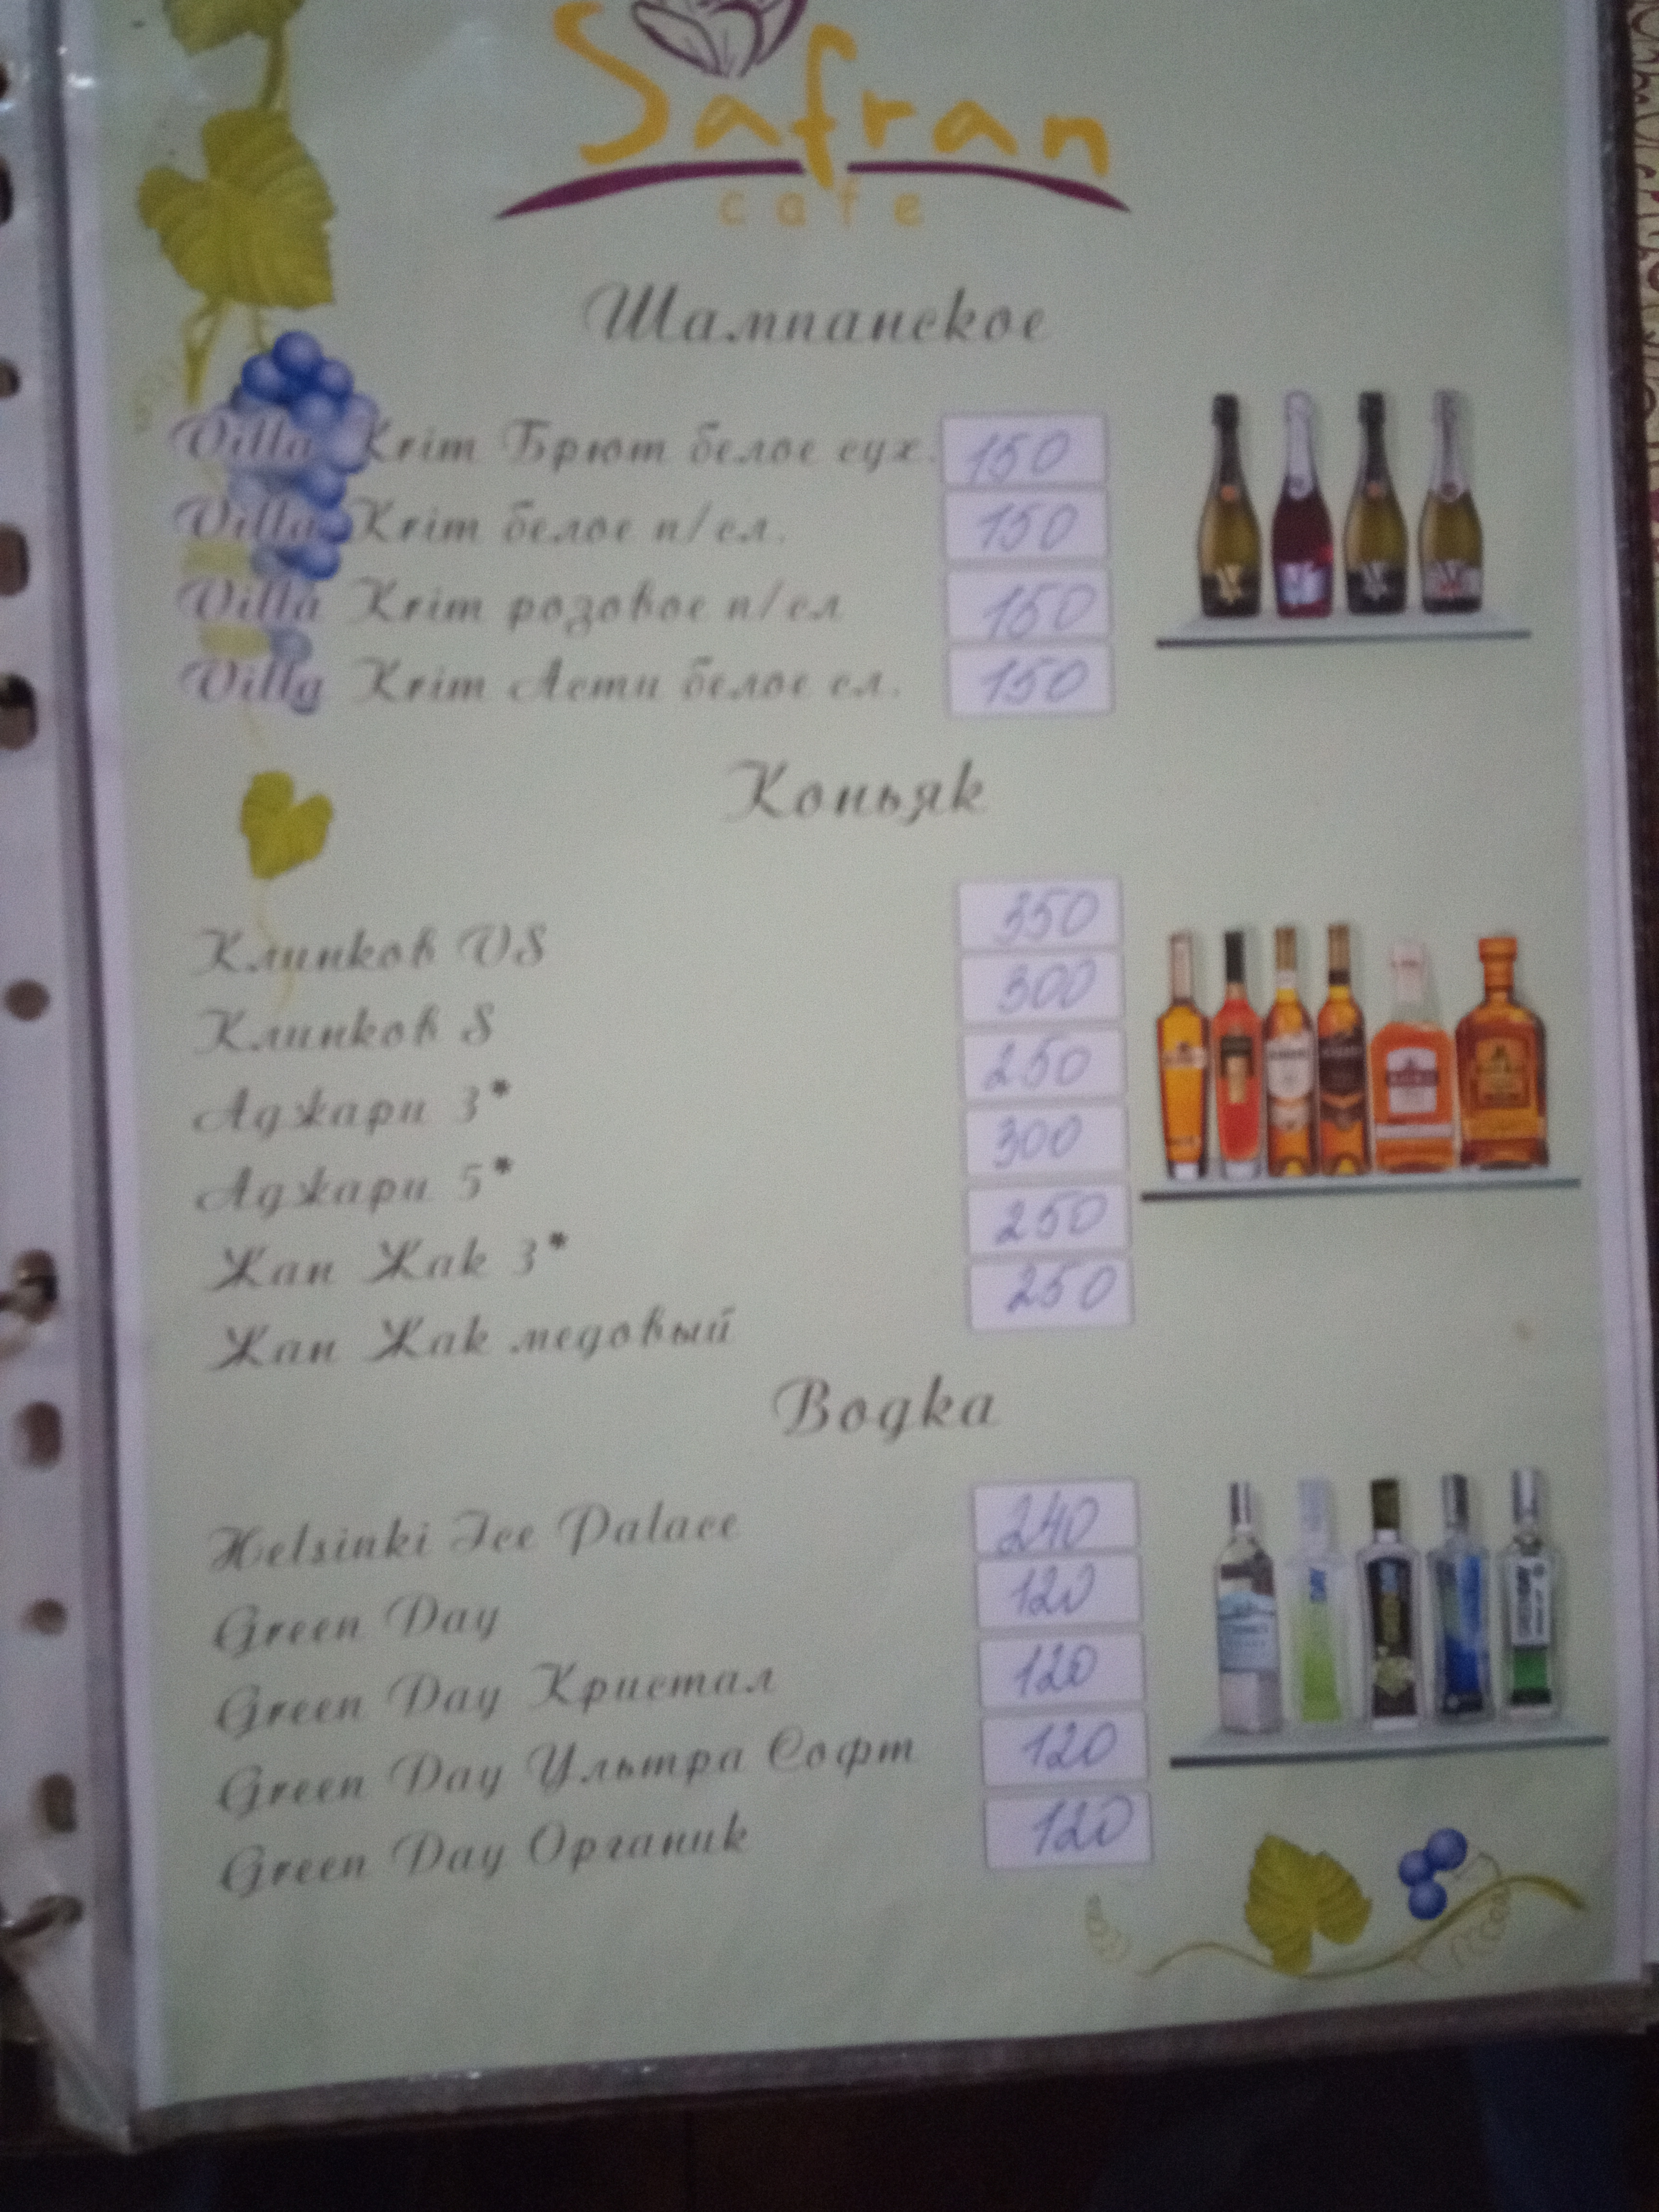 Safran
cafe
Шампанское
Villa Krim Брют белое сух. 150
Villa Krim белое п/сл. 150
Villa Krim розовое п/сл 150
Villa Krim Асти белое сл. 150
Коньяк
Клинков VS 350
Клинков S 300
Аджари 3* 250
Аджари 5* 300
Жан Жак 3* 250
Жан Жак медовый 250
Водка
Helsinki Ice Palace 240
Green Day 120
Green Day Кристал 120
Green Day Ультра Софт 120
Green Day Органик 120